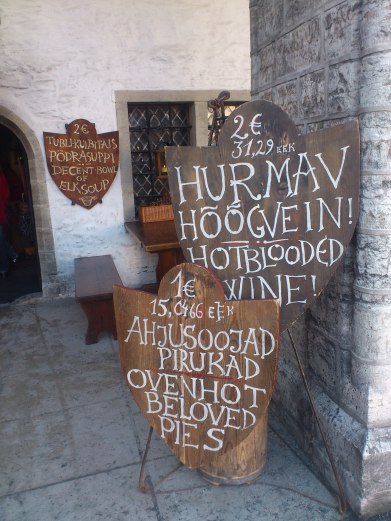 2€
TUBLI KULBITÄIS
PÕDRASUPPI
DECENT BOWL
OF
ELK SOUP
2€
31,29 EEK
HURMAV
HÕÕGVEIN!
HOTBLOODED
WINE!
1€
15,6466 EEK
AHJUSOOJAD
PIRUKAD
OVENHOT
BELOVED
PIES